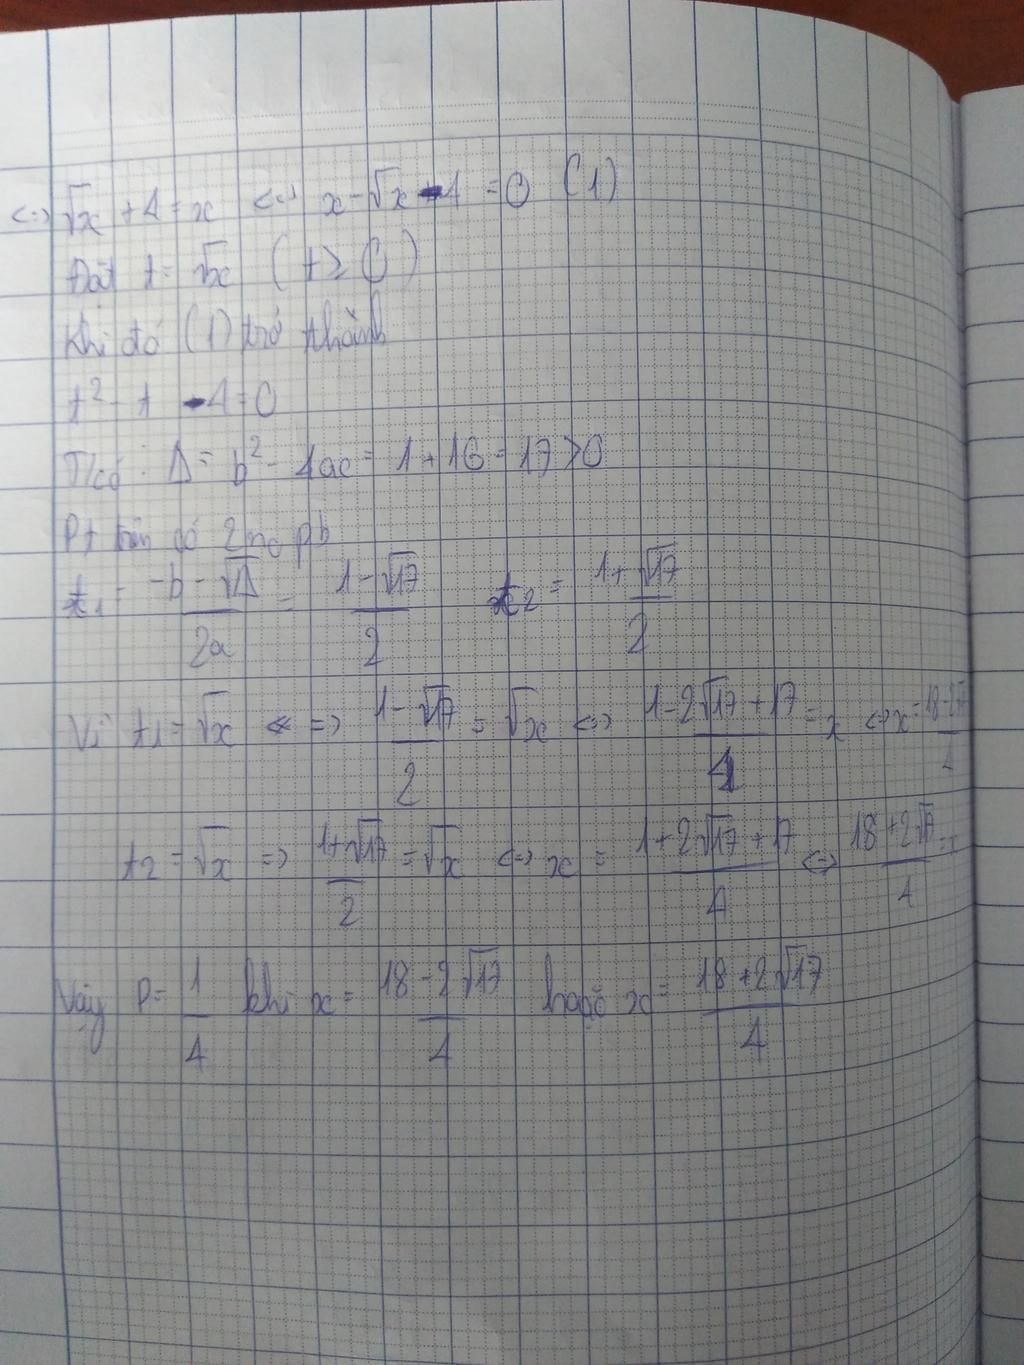 <=> √x + 4 = x <=> x - √x - 4 = 0 (1)
Đặt t = √x (t ≥ 0)
Khi đó (1) trở thành
t² - t - 4 = 0
T/có: Δ = b² - 4ac = 1 + 16 = 17 > 0
Pt trên có 2 n₀ pb
t₁ = (-b - √Δ)/2a = (1 - √17)/2 t₂ = (1 + √17)/2
Vì t₁ = √x => (1 - √17)/2 = √x <=> (1 - 2√17 + 17)/4 = x <=> x = (18 - 2√17)/4
t₂ = √x => (1 + √17)/2 = √x <=> x = (1 + 2√17 + 17)/4 <=> (18 + 2√17)/4 = x
Vậy P = 1/4 khi x = (18 - 2√17)/4 hoặc x = (18 + 2√17)/4